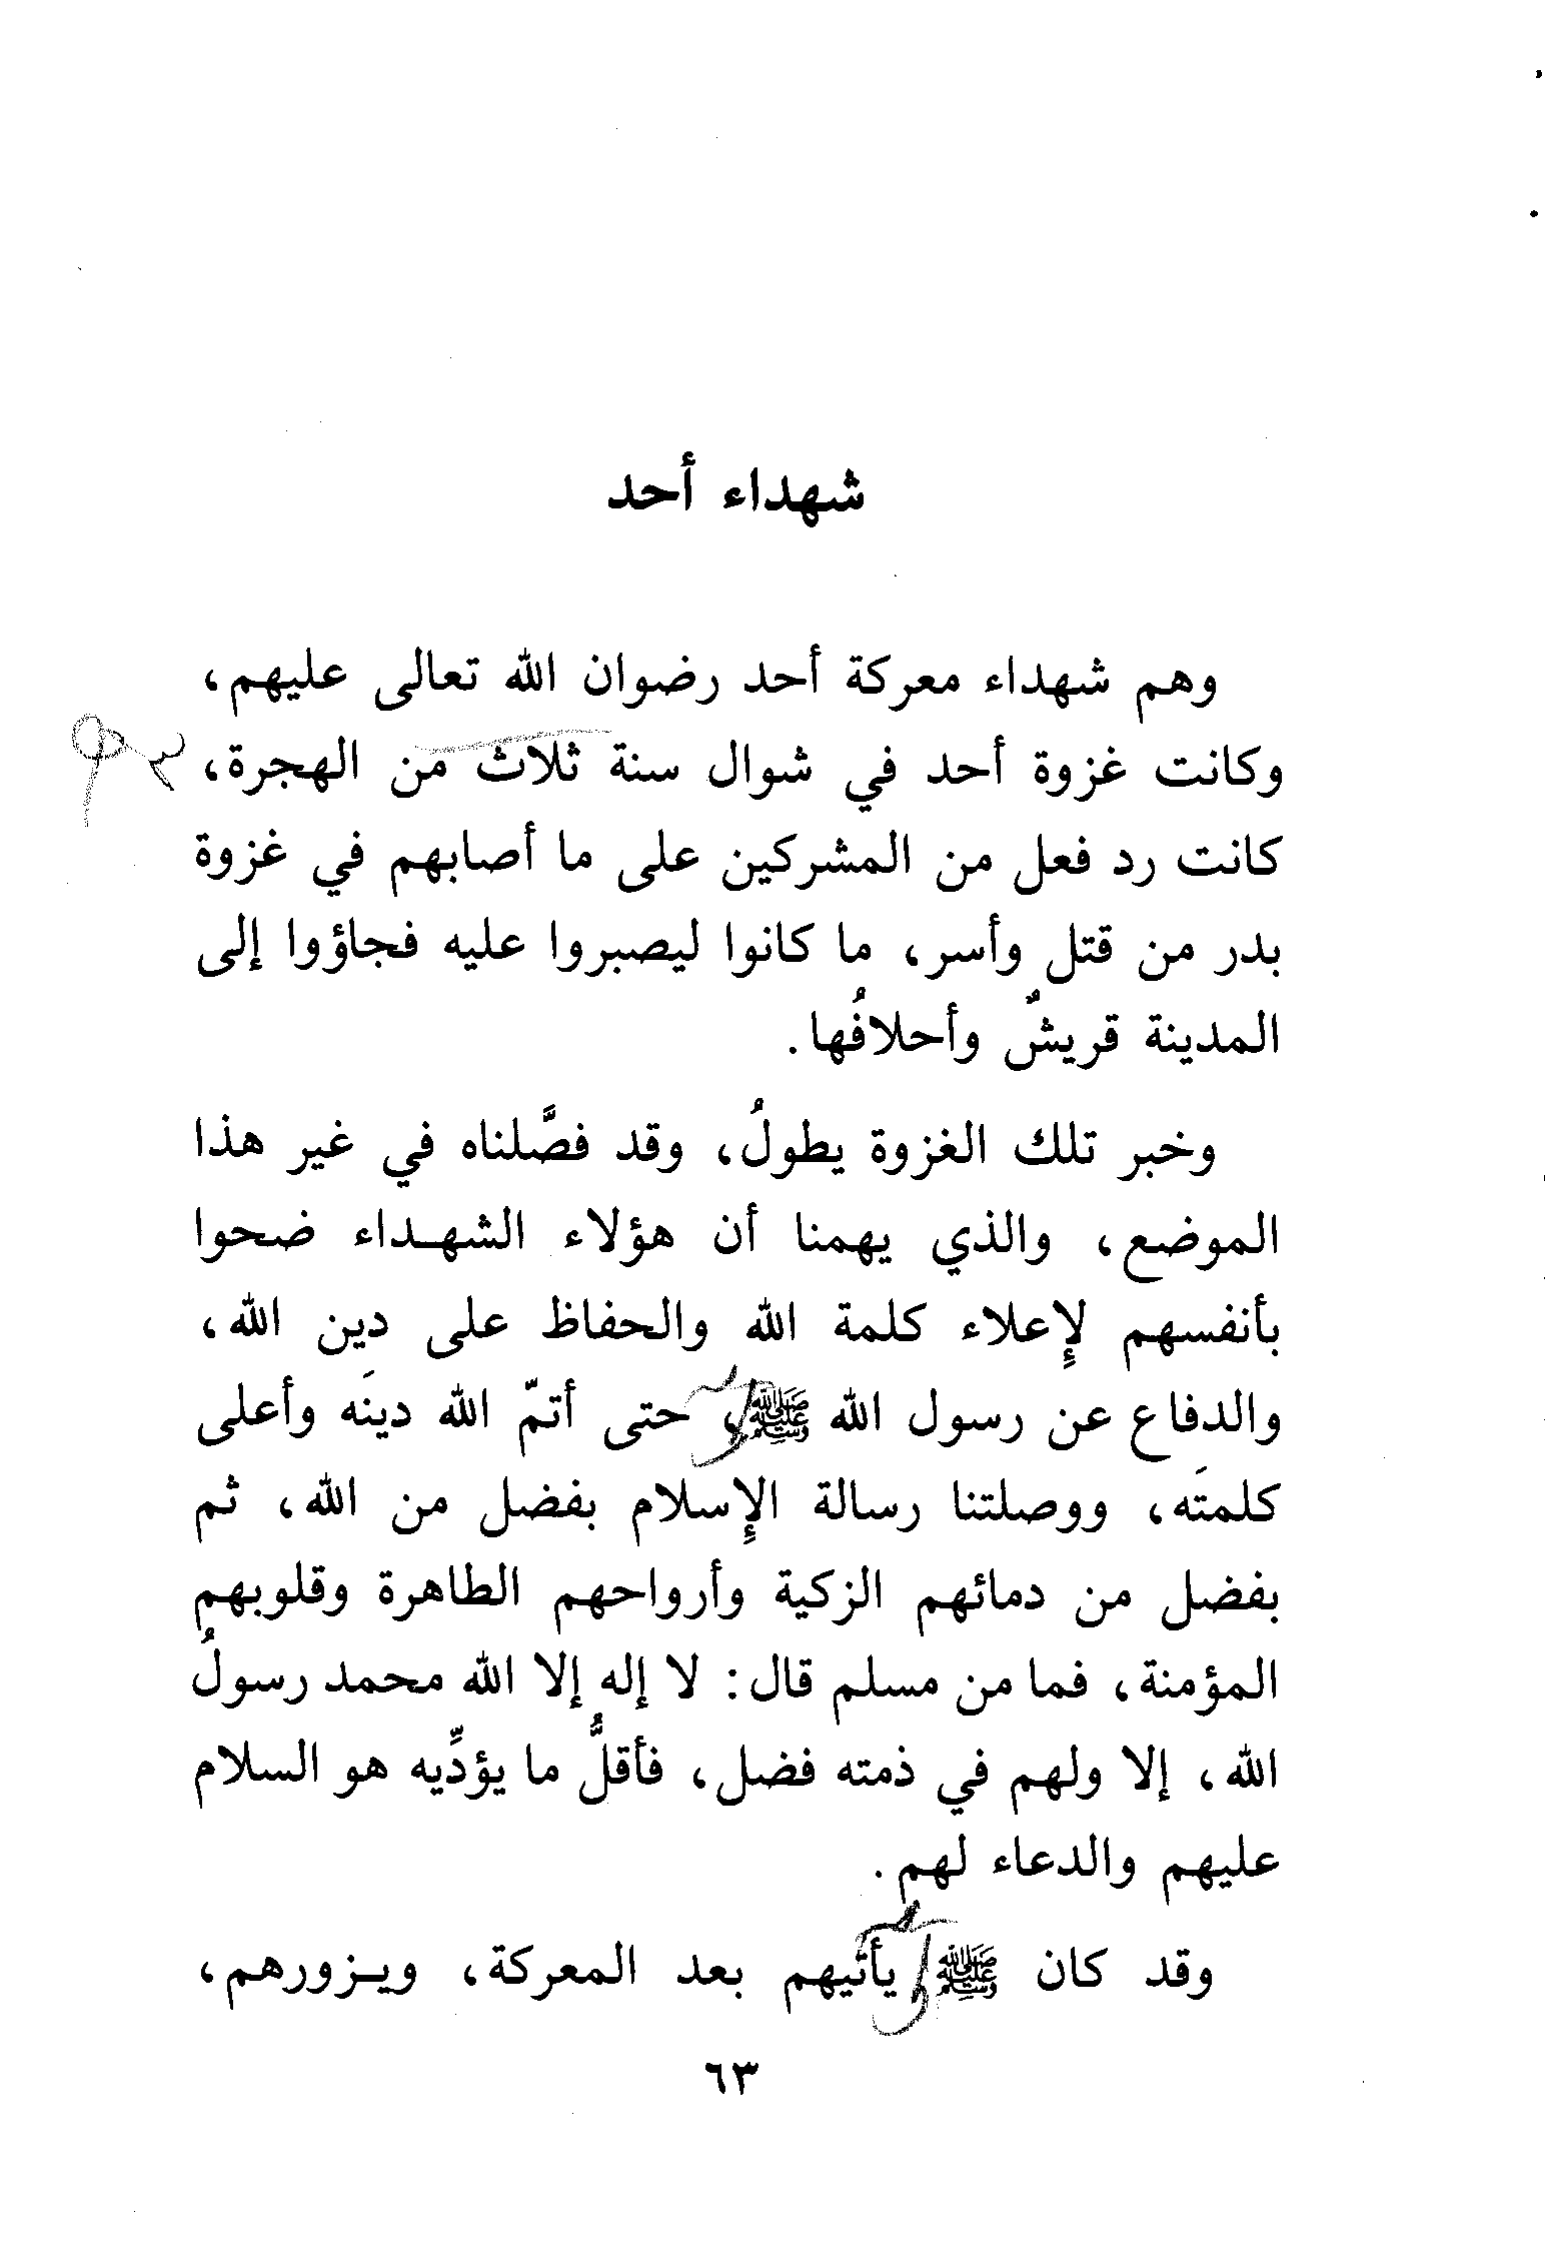 شهداء أحد
وهم شهداء معركة أحد رضوان الله تعالى عليهم،
وكانت غزوة أحد في شوال سنة ثلاث من الهجرة،
كانت رد فعل من المشركين على ما أصابهم في غزوة
بدر من قتل وأسر، ما كانوا ليصبروا عليه فجاؤوا إلى
المدينة قريشٌ وأحلافُها.
وخبر تلك الغزوة يطولُ، وقد فصَّلناه في غير هذا
الموضع، والذي يهمنا أن هؤلاء الشهـداء ضحوا
بأنفسهم لإِعلاء كلمة الله والحفاظ على دين الله،
والدفاع عن رسول الله ﷺ، حتى أتمّ الله دينَه وأعلى
كلمتَه، ووصلتنا رسالة الإِسلام بفضل من الله، ثم
بفضل من دمائهم الزكية وأرواحهم الطاهرة وقلوبهم
المؤمنة، فما من مسلم قال: لا إله إلا الله محمد رسولُ
الله، إلا ولهم في ذمته فضل، فأقلُّ ما يؤدِّيه هو السلام
عليهم والدعاء لهم.
وقد كان ﷺ يأتيهم بعد المعركة، ويـزورهم،
٦٣